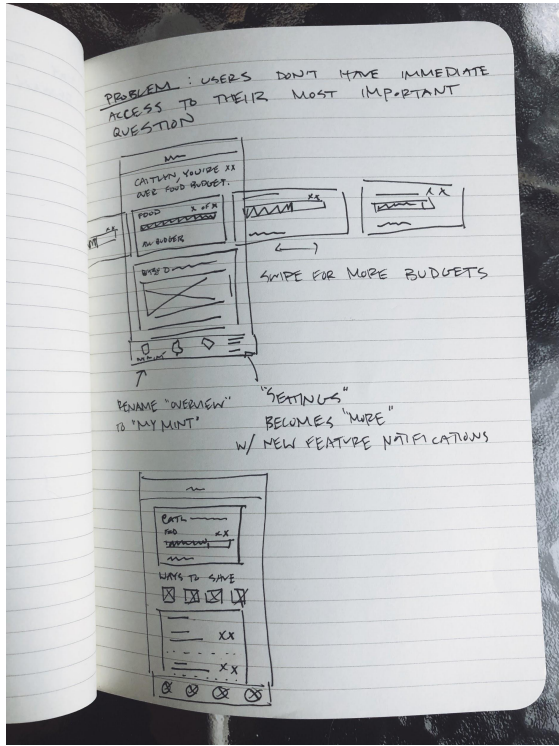 PROBLEM : USERS DON'T HAVE IMMEDIATE
ACCESS TO THEIR MOST IMPORTANT
QUESTION
CAITLYN, YOU'RE XX
OVER FOOD BUDGET.
FOOD X OF X
XX
XX
XX
SWIPE FOR MORE BUDGETS
RENAME "OVERVIEW"
TO "MY MINT"
"SETTINGS"
BECOMES "MORE"
W/ NEW FEATURE NOTIFICATIONS
CATL
FOOD XX
WAYS TO SAVE
XX
XX